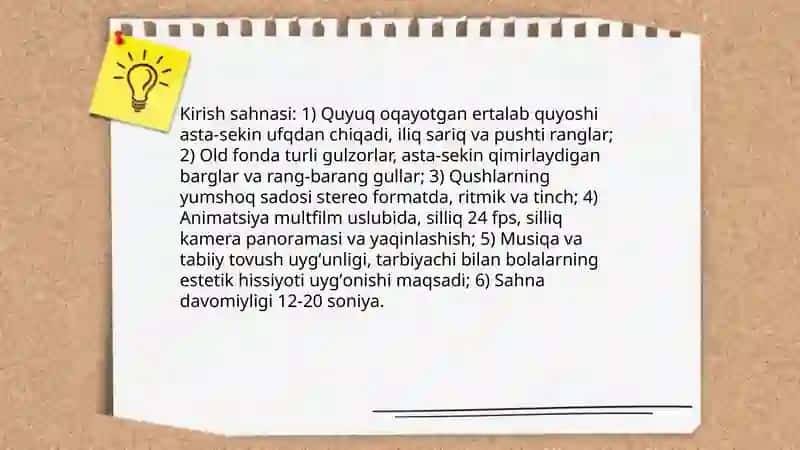 Kirish sahnasi: 1) Quyuq oqayotgan ertalab quyoshi
asta-sekin ufqdan chiqadi, iliq sariq va pushti ranglar;
2) Old fonda turli gulzorlar, asta-sekin qimirlaydigan
barglar va rang-barang gullar; 3) Qushlarning
yumshoq sadosi stereo formatda, ritmik va tinch; 4)
Animatsiya multfilm uslubida, silliq 24 fps, silliq
kamera panoramasi va yaqinlashish; 5) Musiqa va
tabiiy tovush uygʻunligi, tarbiyachi bilan bolalarning
estetik hissiyoti uygʻonishi maqsadi; 6) Sahna
davomiyligi 12-20 soniya.